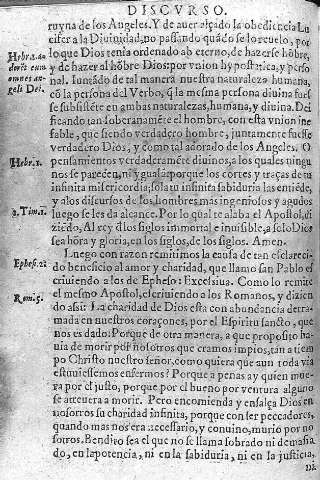 DISCVRSO.
ruyna de los Angeles. Y de auer alçado la obediēcia Lu
cifera la Diuinidad, no passando quādo se lo reuelo, por
lo que Dios tenia ordenado ab eterno, de hazerse hōbre,
y de hazer al hōbre Dios: por vnion hypostatica, y perso
nal. Iuntādo de tal manera nuestra naturaleza humana,
cō la persona del Verbo, q̄ la mesma persona diuina fuesse
se subsistēte en ambas naturalezas, humana, y diuina. Dei
ficando tan soberanamēte el hombre, con esta vnion ine
fable, que siendo verdadero hombre, juntamente fuesse
verdadero Dios, y como tal adorado de los Angeles. O
pensamientos verdaderamēte diuinos, a los quales ningu
nos se parecen, ni ygualā: porque los cortes y traças de tu
infinita misericordia, sola tu infinita sabiduria las entiēde,
y a los discursos de los hombres mas ingeniosos y agudos
luego se les da alcance. Por lo qual te alaba el Apostol, di
ziēdo, Al rey dlos siglos inmortal e inuisible, a solo Dios
sea hōra y gloria, en los siglos, de los siglos. Amen.
Luego con razon remitimos la causa de tan esclareci-
do beneficio al amor y charidad, que llamo san Pablo es
criuiendo a los de Epheso: Excelsiua. Como lo remite
el mesmo Apostol, escriuiendo a los Romanos, y dizien
do assi: La charidad de Dios esta con abundancia derra-
mada en nuestros coraçones, por el Espiritu sancto, que
nos es dado: Porque de otra manera, a que proposito ha-
uia de morir por nosotros que eramos impios, tan a tiem
po Christo nuestro señor, como quiera que aun toda via
estuuiessemos enfermos? Porque a penas ay quien mue-
ra por el justo, porque por el bueno por ventura alguno
se atreuera a morir. Pero encomienda y ensalça Dios en
nosotros su charidad infinita, porque con ser peccadores,
quando mas nos era necessario, y conuino, murio por no
sotros. Bendito sea el que no se llama sobrado ni demasia
do, en la potencia, ni en la sabiduria, ni en la justicia,
Hebr.1.
Hebr.1.
1.Tim.1.
Ephes.2.
Rom.5.